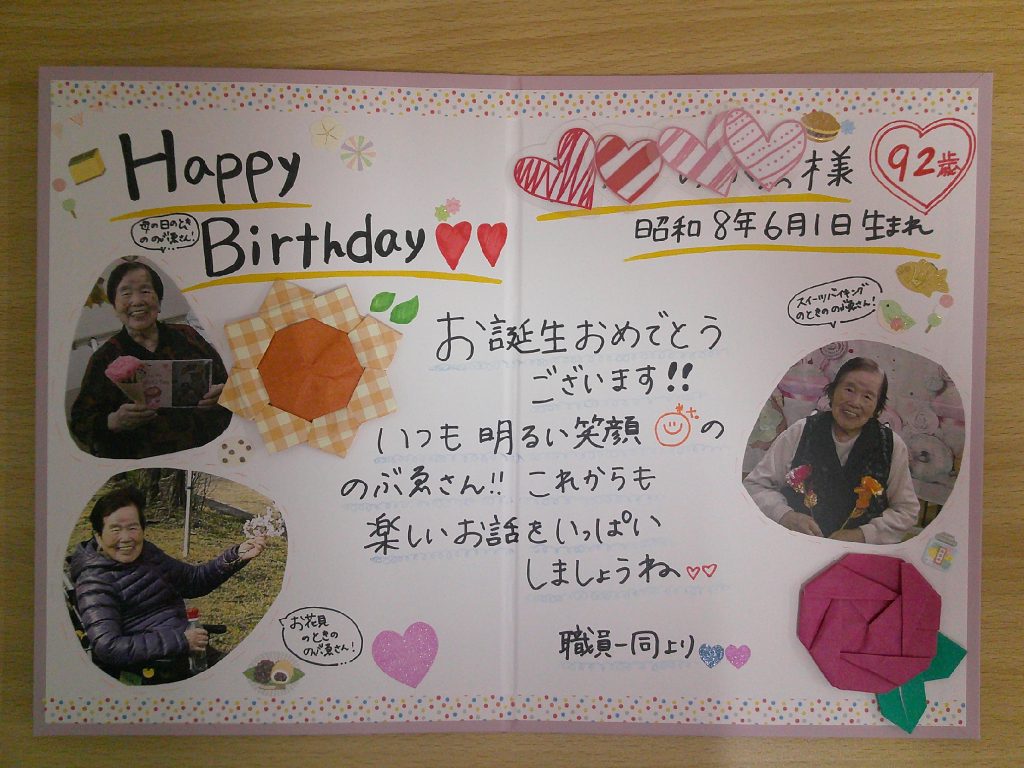 Happy
Birthday
母の日のとき
ののぶゑさん!
お花見
のときの
のぶゑさん!
様
92歳
昭和8年6月1日生まれ
スイーツバイキング
のときの のぶゑさん!
お誕生おめでとう
ございます!!
いつも明るい笑顔 の
のぶゑさん!! これからも
楽しいお話をいっぱい
しましょうね
職員一同より